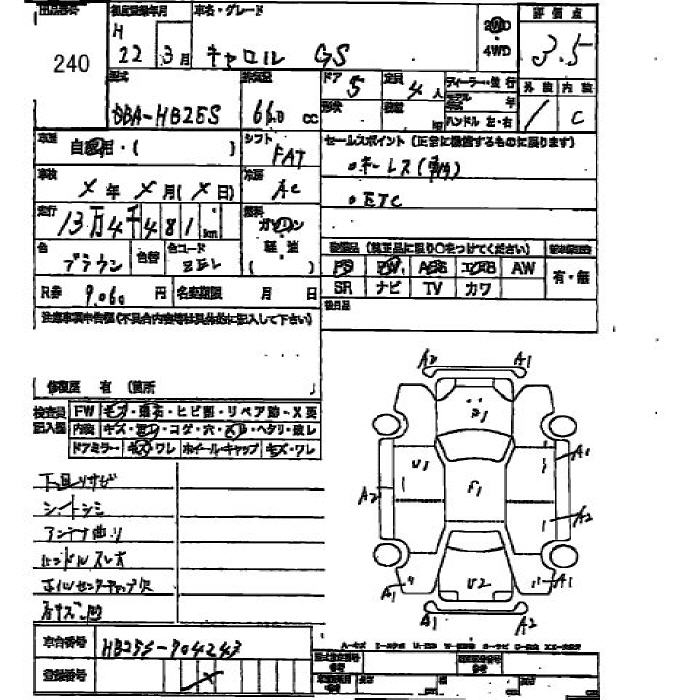 出品番号 初度登録年月 車名・グレード 評価点
240 H 22 3月 キャロル GS 2WD 4WD 3.5
型式 排気量 ドア 定員 ディーラー・並行 外装 内装
DBA-HB25S 660 cc 5 4人 モデル 年 1 C
形状 積載 kg ハンドル 左・右
車歴 シフト セールスポイント(正常に機能するものに限ります)
自家用・( ) FAT
・キーレス
車検 冷房
X年 X月(X日) AC
・ETC
走行 燃料
13万4千481km ガソリン
軽油
色 色替 色コード ( )
ブラウン ZEL
装備品(純正品に限り○をつけてください)
PS PW ABS エアB AW 有・無
SR ナビ TV カワ
R券 9,060円 名変期限 月 日
後日品
注意事項申告欄(不具合内容等は具体的に記入して下さい)
修復歴 有(箇所 )
検査員記入欄 FW キズ・飛石・ヒビ割・リペア跡・X要
内装 キズ・コゲ・穴・ヘタリ・破レ
ドアミラー・キズ・ワレ ホイール・キャップ・キズ・ワレ
下回リサビ
シートシミ
アンテナ曲リ
ハンドルスレ
ホイルセンターキャップ欠
車台番号 HB25S-704243
登録番号 X
A2 A1
A1
U1 F1
A2 A1
A2
U2
A1 A1
A1 A2